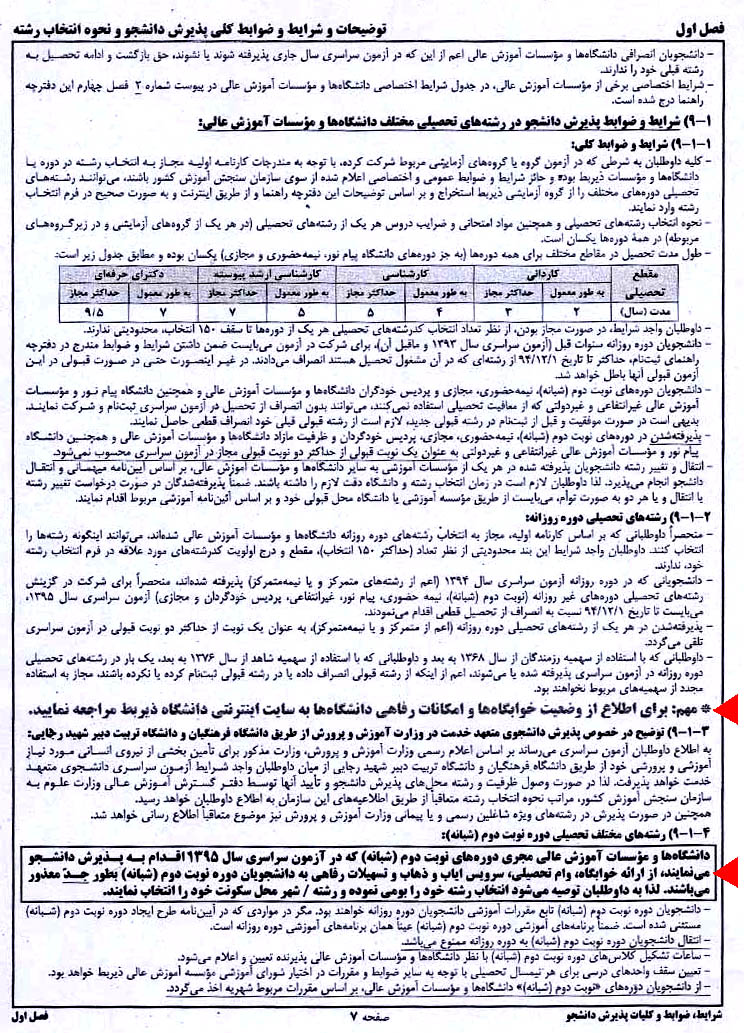 فصل اول
توضیحات و شرایط و ضوابط کلی پذیرش دانشجو و نحوه انتخاب رشته
- دانشجویان انصرافی دانشگاه‌ها و مؤسسات آموزش عالی اعم از این که در آزمون سراسری سال جاری پذیرفته شوند یا نشوند، حق بازگشت و ادامه تحصیل به
رشته قبلی خود را ندارند.
- شرایط اختصاصی برخی از مؤسسات آموزش عالی، در جدول شرایط اختصاصی دانشگاه‌ها و مؤسسات آموزش عالی در پیوست شماره ۲ فصل چهارم این دفترچه
راهنما درج شده است.
۹-۱) شرایط و ضوابط پذیرش دانشجو در رشته‌های تحصیلی مختلف دانشگاه‌ها و مؤسسات آموزش عالی:
۹-۱-۱) شرایط و ضوابط کلی:
- کلیه داوطلبان به شرطی که در آزمون گروه یا گروه‌های آزمایشی مربوط شرکت کرده، با توجه به مندرجات کارنامه اولیه مجاز به انتخاب رشته در دوره یا
دانشگاه‌ها و مؤسسات ذیربط بوده و حائز شرایط و ضوابط عمومی و اختصاصی اعلام شده از سوی سازمان سنجش آموزش کشور باشند، می‌توانند رشته‌های
تحصیلی دوره‌های مختلف را از گروه آزمایشی ذیربط استخراج و بر اساس توضیحات این دفترچه راهنما و از طریق اینترنت و به صورت صحیح در فرم انتخاب
رشته وارد نمایند.
- نحوه انتخاب رشته‌های تحصیلی و همچنین مواد امتحانی و ضرایب دروس هر یک از رشته‌های تحصیلی (در هر یک از گروه‌های آزمایشی و در زیرگروه‌های
مربوطه) در همهٔ دوره‌ها یکسان است.
- طول مدت تحصیل در مقاطع مختلف برای همه دوره‌ها (به جز دوره‌های دانشگاه پیام نور، نیمه‌حضوری و مجازی) یکسان بوده و مطابق جدول زیر است:
مقطع تحصیلی کاردانی کارشناسی کارشناسی ارشد پیوسته دکترای حرفه‌ای
به طور معمول حداکثر مجاز به طور معمول حداکثر مجاز به طور معمول حداکثر مجاز به طور معمول حداکثر مجاز
مدت (سال) ۲ ۳ ۴ ۵ ۵ ۷ ۷ ۹/۵
- داوطلبان واجد شرایط، در صورت مجاز بودن، از نظر تعداد انتخاب کدرشته‌های تحصیلی هر یک از دوره‌ها تا سقف ۱۵۰ انتخاب، محدودیتی ندارند.
- دانشجویان دوره روزانه سنوات قبل (آزمون سراسری سال ۱۳۹۳ و ماقبل آن)، برای شرکت در آزمون می‌بایست ضمن داشتن شرایط و ضوابط مندرج در دفترچه
راهنمای ثبت‌نام، حداکثر تا تاریخ ۹۴/۱۲/۱ از رشته‌ای که در آن مشغول تحصیل هستند انصراف می‌دادند. در غیر اینصورت حتی در صورت قبولی در این
آزمون قبولی آنها باطل خواهد شد.
- دانشجویان دوره‌های نوبت دوم (شبانه)، نیمه‌حضوری، مجازی و پردیس خودگران دانشگاه‌ها و مؤسسات آموزش عالی و همچنین دانشگاه پیام نور و مؤسسات
آموزش عالی غیرانتفاعی و غیردولتی که از معافیت تحصیلی استفاده نمی‌کنند، می‌توانند بدون انصراف از تحصیل در آزمون سراسری ثبت‌نام و شرکت نمایند.
بدیهی است در صورت موفقیت و قبل از ثبت‌نام در رشته قبولی جدید، لازم است از رشته قبولی قبلی خود انصراف قطعی حاصل نمایند.
- پذیرفته‌شدن در دوره‌های نوبت دوم (شبانه)، نیمه‌حضوری، مجازی، پردیس خودگردان و ظرفیت مازاد دانشگاه‌ها و مؤسسات آموزش عالی و همچنین دانشگاه
پیام نور و مؤسسات آموزش عالی غیرانتفاعی و غیردولتی به عنوان یک نوبت قبولی از حداکثر دو نوبت قبولی مجاز در آزمون سراسری محسوب نمی‌شود.
- انتقال و تغییر رشته دانشجویان پذیرفته شده در هر یک از مؤسسات آموزشی به سایر دانشگاه‌ها و مؤسسات آموزش عالی، بر اساس آیین‌نامه میهمانی و انتقال
دانشجو انجام می‌پذیرد. لذا داوطلبان لازم است در زمان انتخاب رشته و دانشگاه دقت لازم را داشته باشند. ضمناً پذیرفته‌شدگان در صورت درخواست تغییر رشته
یا انتقال و یا هر دو به صورت توأم، می‌بایست از طریق مؤسسه آموزشی یا دانشگاه محل قبولی خود و بر اساس آئین‌نامه آموزشی مربوط اقدام نمایند.
۹-۱-۲) رشته‌های تحصیلی دوره روزانه:
- منحصراً داوطلبانی که بر اساس کارنامه اولیه، مجاز به انتخاب رشته‌های دوره روزانه دانشگاه‌ها و مؤسسات آموزش عالی شده‌اند، می‌توانند اینگونه رشته‌ها را
انتخاب کنند. داوطلبان واجد شرایط این بند محدودیتی از نظر تعداد (حداکثر ۱۵۰ انتخاب)، مقطع و درج اولویت کدرشته‌های مورد علاقه در فرم انتخاب رشته
خود، ندارند.
- دانشجویانی که در دوره روزانه آزمون سراسری سال ۱۳۹۴ (اعم از رشته‌های متمرکز و یا نیمه‌متمرکز) پذیرفته شده‌اند، منحصراً برای شرکت در گزینش
رشته‌های تحصیلی دوره‌های غیر روزانه (نوبت دوم (شبانه)، نیمه حضوری، پیام نور، غیرانتفاعی، پردیس خودگردان و مجازی) آزمون سراسری سال ۱۳۹۵،
می‌بایست تا تاریخ ۹۴/۱۲/۱ نسبت به انصراف از تحصیل قطعی اقدام می‌نمودند.
- پذیرفته‌شدن در هر یک از رشته‌های تحصیلی دوره روزانه (اعم از متمرکز و یا نیمه‌متمرکز)، به عنوان یک نوبت از حداکثر دو نوبت قبولی در آزمون سراسری
تلقی می‌گردد.
- داوطلبانی که با استفاده از سهمیه رزمندگان از سال ۱۳۶۸ به بعد و داوطلبانی که با استفاده از سهمیه شاهد از سال ۱۳۷۶ به بعد، یک بار در رشته‌های تحصیلی
دوره روزانه در آزمون سراسری پذیرفته شده یا می‌شوند، اعم از اینکه از رشته قبولی انصراف داده یا در رشته قبولی ثبت‌نام کرده یا نکرده باشند، مجاز به استفاده
مجدد از سهمیه‌های مربوط نخواهند بود.
* مهم: برای اطلاع از وضعیت خوابگاه‌ها و امکانات رفاهی دانشگاه‌ها به سایت اینترنتی دانشگاه ذیربط مراجعه نمایید.
۹-۱-۳) توضیح در خصوص پذیرش دانشجوی متعهد خدمت در وزارت آموزش و پرورش از طریق دانشگاه فرهنگیان و دانشگاه تربیت دبیر شهید رجایی:
به اطلاع داوطلبان آزمون سراسری می‌رساند بر اساس اعلام رسمی وزارت آموزش و پرورش، وزارت مذکور برای تأمین بخشی از نیروی انسانی مورد نیاز
آموزشی و پرورشی خود از طریق دانشگاه فرهنگیان و دانشگاه تربیت دبیر شهید رجایی از میان داوطلبان واجد شرایط آزمون سراسری دانشجوی متعهد
خدمت خواهد پذیرفت. لذا در صورت وصول ظرفیت و رشته محل‌های پذیرش دانشجو و تأیید آنها توسط دفتر گسترش آموزش عالی وزارت علوم به
سازمان سنجش آموزش کشور، مراتب نحوه انتخاب رشته متعاقباً از طریق اطلاعیه‌های این سازمان به اطلاع داوطلبان خواهد رسید.
همچنین در صورت پذیرش در رشته‌های ویژه شاغلین رسمی و یا پیمانی وزارت آموزش و پرورش نیز موضوع متعاقباً اطلاع رسانی خواهد شد.
۹-۱-۴) رشته‌های مختلف تحصیلی دوره نوبت دوم (شبانه):
دانشگاه‌ها و مؤسسات آموزش عالی مجری دوره‌های نوبت دوم (شبانه) که در آزمون سراسری سال ۱۳۹۵ اقدام به پذیرش دانشجو
می‌نمایند، از ارائه خوابگاه، وام تحصیلی، سرویس ایاب و ذهاب و تسهیلات رفاهی به دانشجویان دوره نوبت دوم (شبانه) بطور جدّ معذور
می‌باشند. لذا به داوطلبان توصیه می‌شود انتخاب رشته خود را بومی نموده و رشته / شهر محل سکونت خود را انتخاب نمایند.
- دانشجویان دوره نوبت دوم (شبانه) تابع مقررات آموزشی دانشجویان دوره روزانه خواهند بود. مگر در مواردی که در آیین‌نامه طرح ایجاد دوره نوبت دوم (شبانه)
مستثنی شده است. ضمناً برنامه‌های آموزشی دوره نوبت دوم (شبانه) عیناً همان برنامه‌های آموزشی دوره روزانه است.
- انتقال دانشجویان دوره نوبت دوم (شبانه) به دوره روزانه ممنوع می‌باشد.
- ساعات تشکیل کلاس‌های دوره نوبت دوم (شبانه) با نظر دانشگاه‌ها و مؤسسات آموزش عالی پذیرنده تعیین و اعلام می‌شود.
- تعیین سقف واحدهای درسی برای هر نیمسال تحصیلی با توجه به سایر ضوابط و مقررات در اختیار شورای آموزشی مؤسسه آموزش عالی ذیربط خواهد بود.
- از دانشجویان دوره‌های «نوبت دوم (شبانه)» دانشگاه‌ها و مؤسسات آموزش عالی، بر اساس مقررات مربوط شهریه اخذ می‌گردد.
شرایط، ضوابط و کلیات پذیرش دانشجو
صفحه ۷
فصل اول